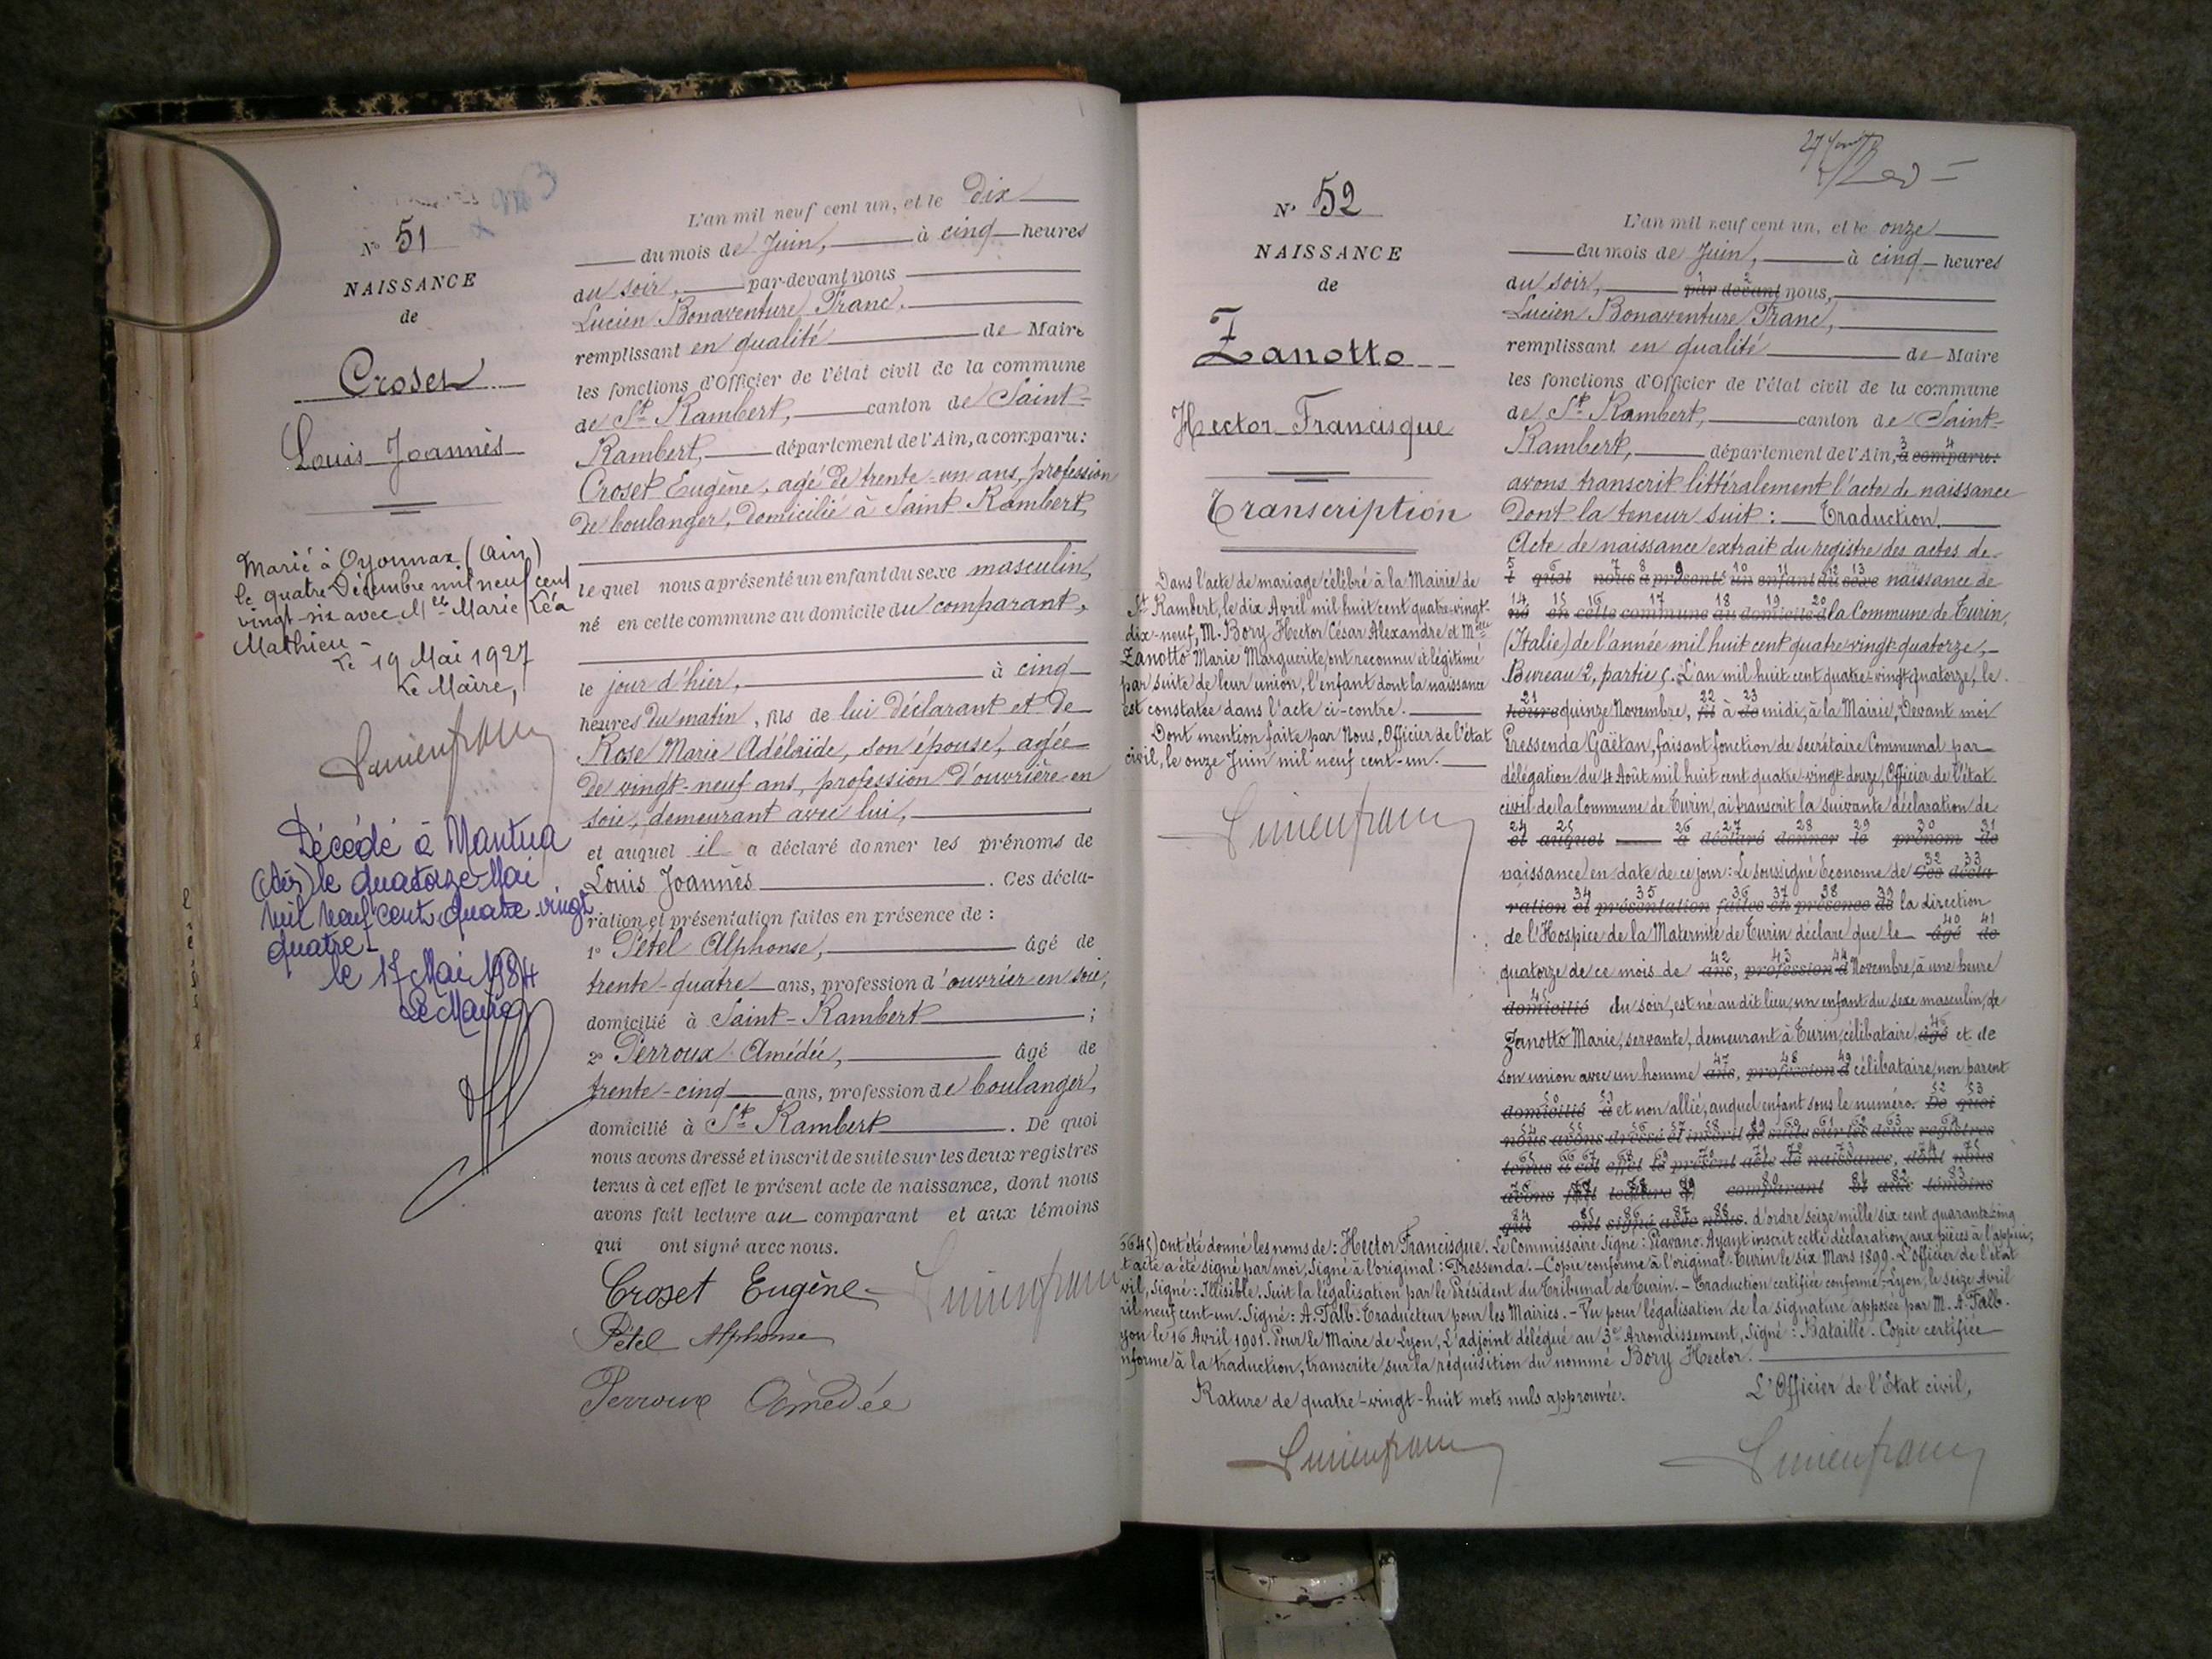 N° 51
NAISSANCE
de
Croset
Louis Joannès
Marié à Oyonnax (Ain)
le quatre Décembre mil neuf cent
vingt-six avec Mlle Marie Léa
Mathieu -
Le 19 Mai 1927
Le Maire,
Décédé à Nantua
(Ain) le quatorze Mai
mil neuf cent quatre-vingt
quatre -
le 17 Mai 1984
Le Maire
L'an mil neuf cent un, et le Dix
du mois de Juin, à cinq heures
du soir, par-devant nous
Lucien Bonaventure Franc,
remplissant en qualité de Maire
les fonctions d'Officier de l'état civil de la commune
de St Rambert, canton de Saint-
Rambert, département de l'Ain, a comparu:
Croset Eugène, agé de trente-un ans, profession
de boulanger, domicilié à Saint Rambert,
lequel nous a présenté un enfant du sexe masculin,
né en cette commune au domicile du comparant,
le jour d'hier, à cinq
heures du matin, fils de lui déclarant et de
Rose Marie Adélaïde, son épouse, agée
de vingt-neuf ans, profession d'ouvrière en
soie, demeurant avec lui,
et auquel il a déclaré donner les prénoms de
Louis Joannès. Ces décla-
ration et présentation faites en présence de :
1° Pétel Alphonse, âgé de
trente-quatre ans, profession d'ouvrier en soie,
domicilié à Saint-Rambert ;
2° Perroux Amédée, âgé de
trente-cinq ans, profession de boulanger,
domicilié à St Rambert. De quoi
nous avons dressé et inscrit de suite sur les deux registres
tenus à cet effet le présent acte de naissance, dont nous
avons fait lecture au comparant et aux témoins
qui ont signé avec nous.
Croset Eugène
Pétel Alphonse
Perroux Amédée
N° 52
NAISSANCE
de
Zanotto
Hector Francisque
Transcription
Dans l'acte de mariage célébré à la Mairie de
St Rambert, le dix Avril mil huit cent quatre-vingt-
dix-neuf, M. Bory Hector César Alexandre et Melle
Zanotto Marie Marguerite, ont reconnu et légitimé
par suite de leur union, l'enfant dont la naissance
est constatée dans l'acte ci-contre.
Dont mention faite par Nous, Officier de l'état
civil, le onze Juin mil neuf cent-un.
L'an mil neuf cent un, et le onze
du mois de Juin, à cinq heures
du soir, par devant nous,
Lucien Bonaventure Franc,
remplissant en qualité de Maire
les fonctions d'Officier de l'état civil de la commune
de St Rambert, canton de Saint-
Rambert, département de l'Ain, a comparu:
avons transcrit littéralement l'acte de naissance
Dont la teneur suit : Traduction.
Acte de naissance extrait du registre des actes de
quel nous a présenté un enfant du sexe naissance de
né en cette commune au domicile d la Commune de Turin,
(Italie) de l'année mil huit cent quatre-vingt-quatorze,
Bureau 2, partie 5. L'an mil huit cent quatre-vingt-quatorze, le
heure quinze Novembre, à midi, à la Mairie, Devant moi
Pressenda Gaëtan, faisant fonction de secrétaire Communal par
délégation du 4 Août mil huit cent quatre-vingt-douze, Officier de l'état
civil de la Commune de Turin, ai transcrit la suivante déclaration de
et auquel a déclaré donner le prénom de
naissance en date de ce jour : Le soussigné Econome de Ces décla-
ration et présentation faites en présence de la direction
de l'Hospice de la Maternité de Turin déclare que le âgé de
quatorze de ce mois de ans, profession d Novembre, à une heure
domicilié du soir, est né au dit lieu, un enfant du sexe masculin, de
Zanotto Marie, servante, demeurant à Turin, célibataire, âgé et de
son union avec un homme ans, profession d célibataire, non parent
domicilié à et non allié, auquel enfant sous le numéro. De quoi
nous avons dressé et inscrit de suite sur les deux registres
tenus à cet effet le présent acte de naissance, dont nous
avons fait lecture comparant et aux témoins
qui ont signé avec nous. d'ordre seize mille six cent quarante cinq
6645) ont été donné les noms de : Hector Francisque. Le Commissaire Signé : Piavano. Ayant inscrit cette déclaration aux pièces à l'appui,
t acte a été signé par moi, Signé à l'original : Pressenda. - Copie conforme à l'original. Turin le six Mars 1899. L'officier de l'état
vil, Signé : Illisible. Suit la légalisation par le Président du Tribunal de Turin. - Traduction certifiée conforme - Lyon, le seize Avril
il neuf cent-un. Signé : A. Falb. Traducteur pour les Mairies. - Vu pour légalisation de la signature apposée par M. A. Falb.
yon le 16 Avril 1901. Pour le Maire de Lyon, L'adjoint délégué au 3e Arrondissement, Signé : Bataille. Copie certifiée
nforme à la traduction, transcrite sur la réquisition du nommé Bory Hector.
Rature de quatre-vingt-huit mots nuls approuvée.
L'Officier de l'Etat civil,